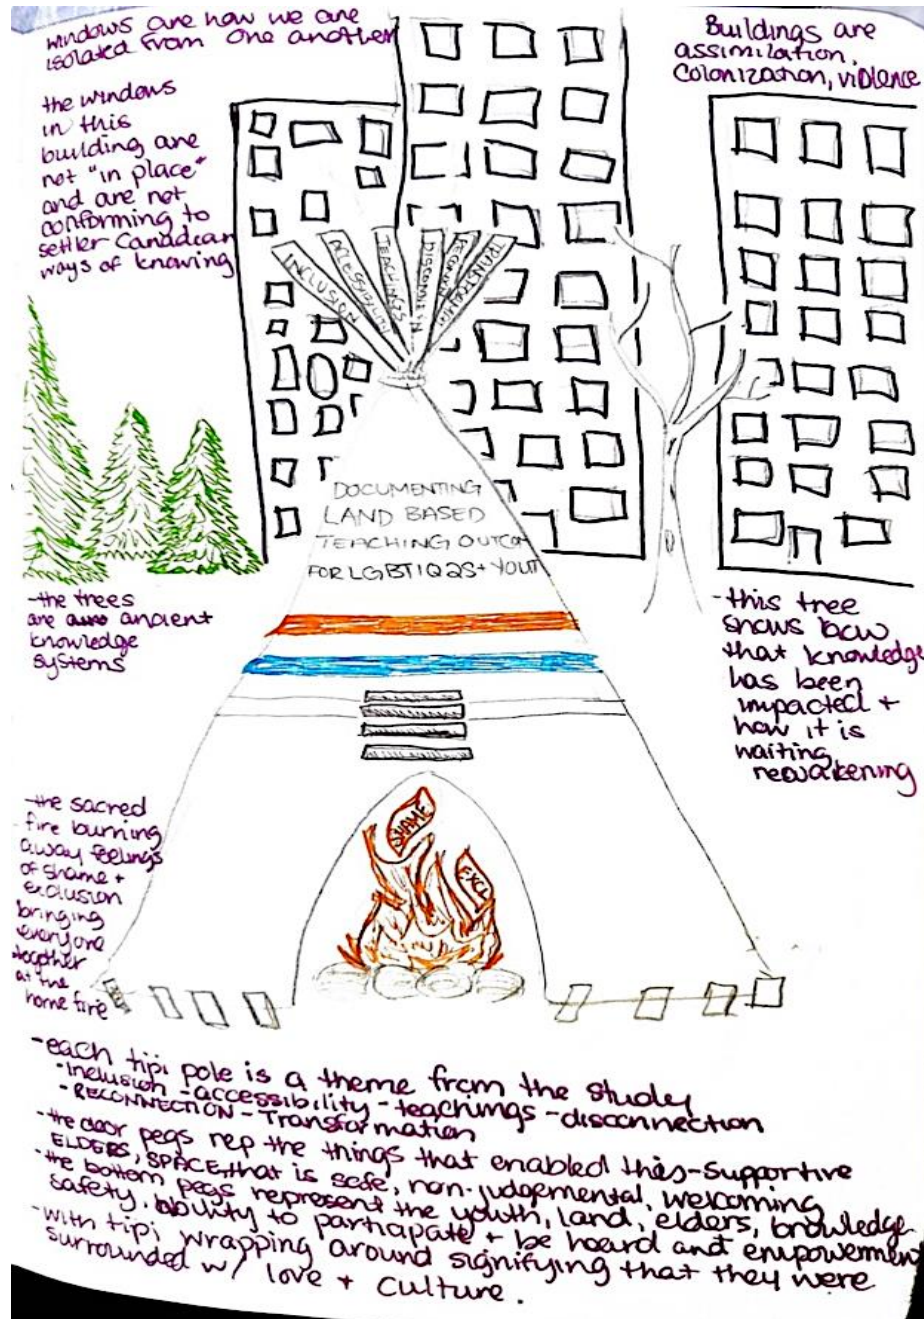 windows are how we are
isolated from one another
Buildings are
assimilation,
colonization, violence
the windows
in this
building are
not "in place"
and are not
conforming to
settler Canadian
ways of knowing
INCLUSION
ACCESSIBILITY
TEACHINGS
DISCONNE
RECONN
TRANSFORM
DOCUMENTING
LAND BASED
TEACHING OUTCOM
FOR LGBTIQ2S+ YOUT
-the trees
are ancient
knowledge
systems
-this tree
shows how
that knowledge
has been
impacted +
how it is
waiting
reawakening
-the sacred
fire burning
away feelings
of shame +
exclusion
bringing
everyone
together
at the
home fire
SHAME
EXCL
-each tipi pole is a theme from the study
-Inclusion -accessibility -teachings -disconnection
-RECONNECTION -Transformation
-the door pegs rep the things that enabled this -supportive
ELDERS, SPACE that is safe, non-judgemental, welcoming
-the bottom pegs represent the youth, land, elders, knowledge
safety, ability to participate + be heard and empowerment
-with tipi wrapping around signifying that they were
surrounded w/ love + culture.